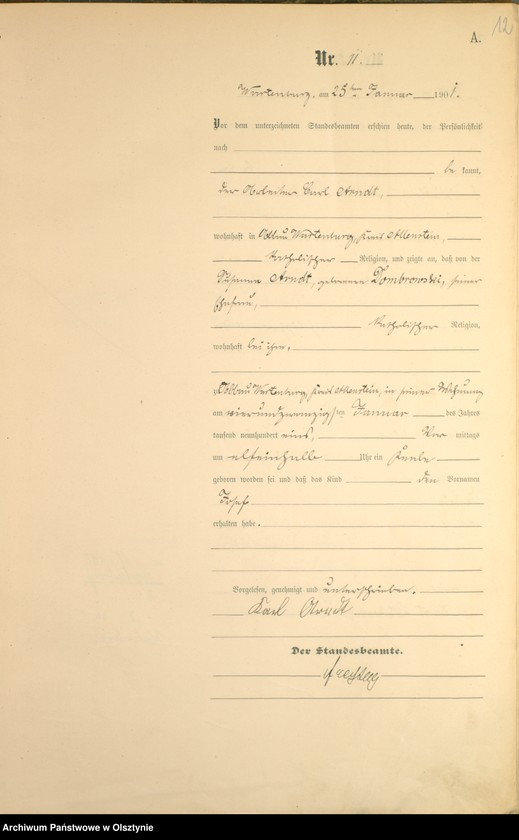 12
A.
Nr. 11.
Wartenburg, am 25ten Januar 1901.
Vor dem unterzeichneten Standesbeamten erschien heute, der Persönlichkeit
nach
be kannt,
der Arbeiter Carl Arndt,
wohnhaft in Abbau Wartenburg, Kreis Allenstein,
katholischer Religion, und zeigte an, daß von der
Susanna Arndt, geborenen Dombrowski, seiner
Ehefrau,
katholischer Religion,
wohnhaft bei ihm,
zu Abbau Wartenburg, Kreis Allenstein, in seiner Wohnung
am vierundzwanzigsten Januar des Jahres
tausend neunhundert eins, Vor mittags
um elfeinhalb Uhr ein Knabe
geboren worden sei und daß das Kind den Vornamen
Josef
erhalten habe.
Vorgelesen, genehmigt und unterschrieben.
Karl Arndt
Der Standesbeamte.
Archiwum Państwowe w Olsztynie